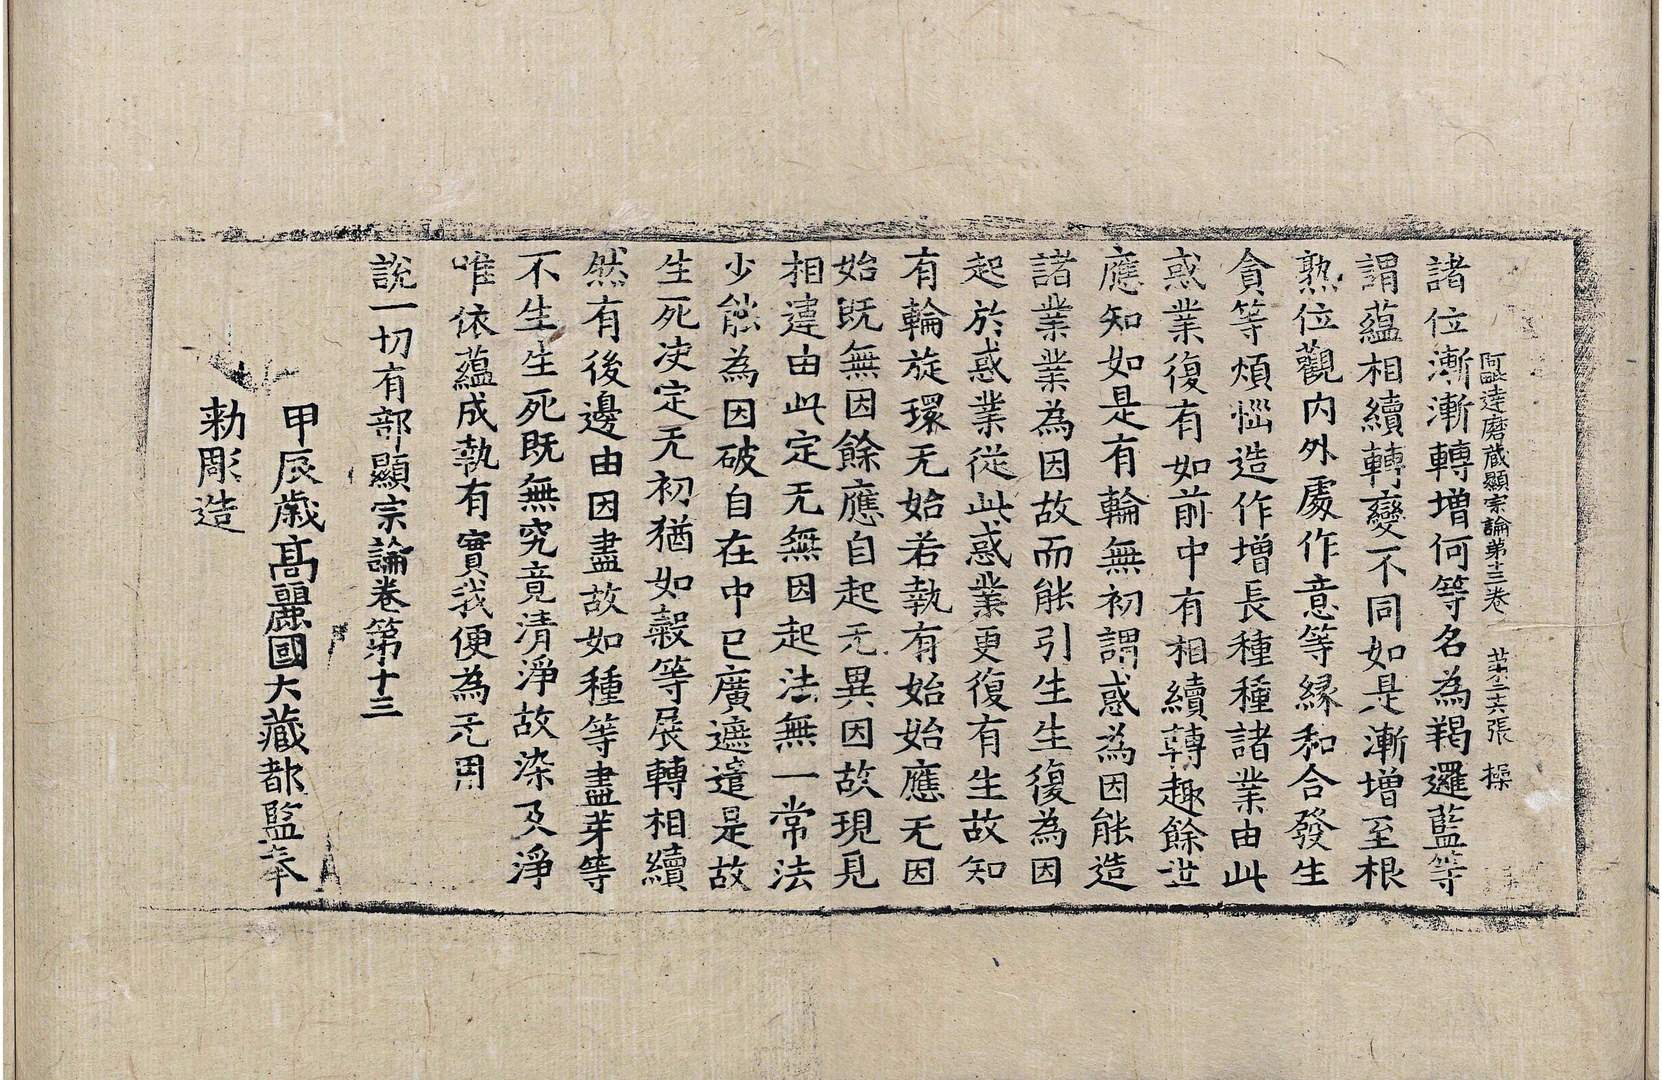 阿毗達磨藏顯宗論第十三卷 第二十六張 操
諸位漸漸轉增何等名為羯邏藍等
謂蘊相續轉變不同如是漸增至根
熟位觀內外處作意等緣和合發生
貪等煩惱造作增長種種諸業由此
惑業復有如前中有相續轉趣餘世
應知如是有輪無初謂惑為因能造
諸業業為因故而能引生生復為因
起於惑業從此惑業更復有生故知
有輪旋環无始若執有始始應无因
始既無因餘應自起无異因故現見
相違由此定无無因起法無一常法
少能為因破自在中已廣遮遣是故
生死決定无初猶如穀等展轉相續
然有後邊由因盡故如種等盡芽等
不生生死既無究竟清淨故染及淨
唯依蘊成執有實我便為无用
說一切有部顯宗論卷第十三
甲辰歲高麗國大藏都監奉
勅彫造